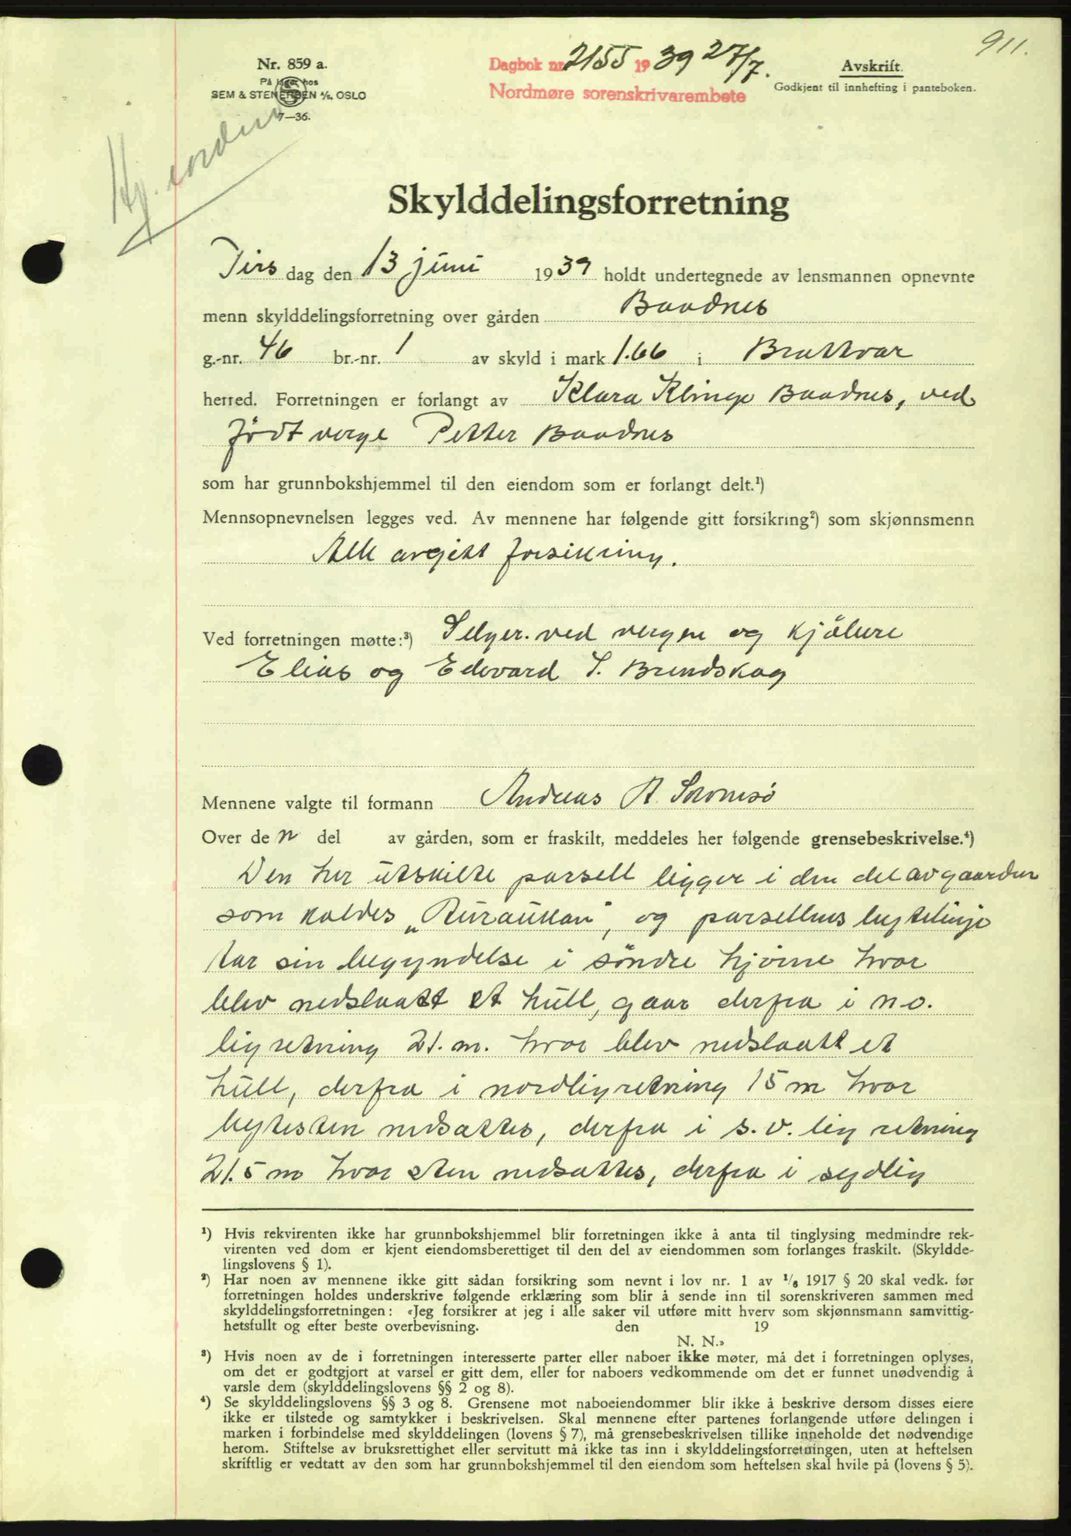 911.
Nr. 859 a.
På lager hos
SEM & STENERSEN A/S, OSLO
7—36.
Dagbok nr 2155 1939 27/7.
Nordmøre sorenskrivarembete
Avskrift.
Godkjent til innhefting i panteboken.
Skylddelingsforretning
Tirs dag den 13 juni 1939 holdt undertegnede av lensmannen opnevnte
menn skylddelingsforretning over gården Baadnes
g.-nr. 46 br.-nr. 1 av skyld i mark 1.66 i Brattvær
herred. Forretningen er forlangt av Klara Klinge Baadnes, ved
født verge Petter Baadnes
som har grunnbokshjemmel til den eiendom som er forlangt delt.¹)
Mennsopnevnelsen legges ved. Av mennene har følgende gitt forsikring²) som skjønnsmenn
Alle avgitt forsikring.
Ved forretningen møtte:³) Selger ved vergen og kjöbere
Elias og Edvard S. Brendskag
Mennene valgte til formann Andreas A.
Over de n del av gården, som er fraskilt, meddeles her følgende grensebeskrivelse.⁴)
Den her utskilte parsell ligger i den del av gaarden
som kaldes, og parsellens bytelinje
tar sin begyndelse i söndre hjörne hvor
blev nedslaatt et hull, gaar derfra i n.o.
lig retning 21. m. hvor blev nedslaatt et
hull, derfra i nordlig retning 15 m hvor
bytesten nedsattes, derfra i s.v. lig retning
21.5 m hvor sten nedsattes, derfra i sydlig
¹) Hvis rekvirenten ikke har grunnbokshjemmel blir forretningen ikke å anta til tinglysing medmindre rek-
virenten ved dom er kjent eiendomsberettiget til den del av eiendommen som forlanges fraskilt. (Skyldde-
lingslovens § 1).
²) Har noen av mennene ikke gitt sådan forsikring som nevnt i lov nr. 1 av 1/6 1917 § 20 skal vedk. før
forretningen holdes underskrive følgende erklæring som blir å sende inn til sorenskriveren sammen med
skylddelingsforretningen: «Jeg forsikrer at jeg i alle saker vil utføre mitt hverv som skjønnsmann samvittig-
hetsfullt og efter beste overbevisning. den 19
N. N.»
³) Hvis noen av de i forretningen interesserte parter eller naboer ikke møter, må det i forretningen oplyses,
om det er godtgjort at varsel er gitt dem, eller for naboers vedkommende om det er funnet unødvendig å
varsle dem (skylddelingslovens §§ 2 og 8).
⁴) Se skylddelingslovens §§ 3 og 8. Grensene mot naboeiendommer blir ikke å beskrive dersom disses eiere
ikke er tilstede og samtykker i beskrivelsen. Skal mennene efter partenes forlangende utføre delingen i
marken i forbindelse med skylddelingen (lovens § 7), må grensebeskrivelsen tillike inneholde det nødvendige
herom. Stiftelse av bruksrettighet eller servitutt må ikke tas inn i skylddelingsforretningen, uten at heftelsen
skriftlig er vedtatt av den som har grunnbokshjemmel til den eiendom som heftelsen skal hvile på (lovens § 5).